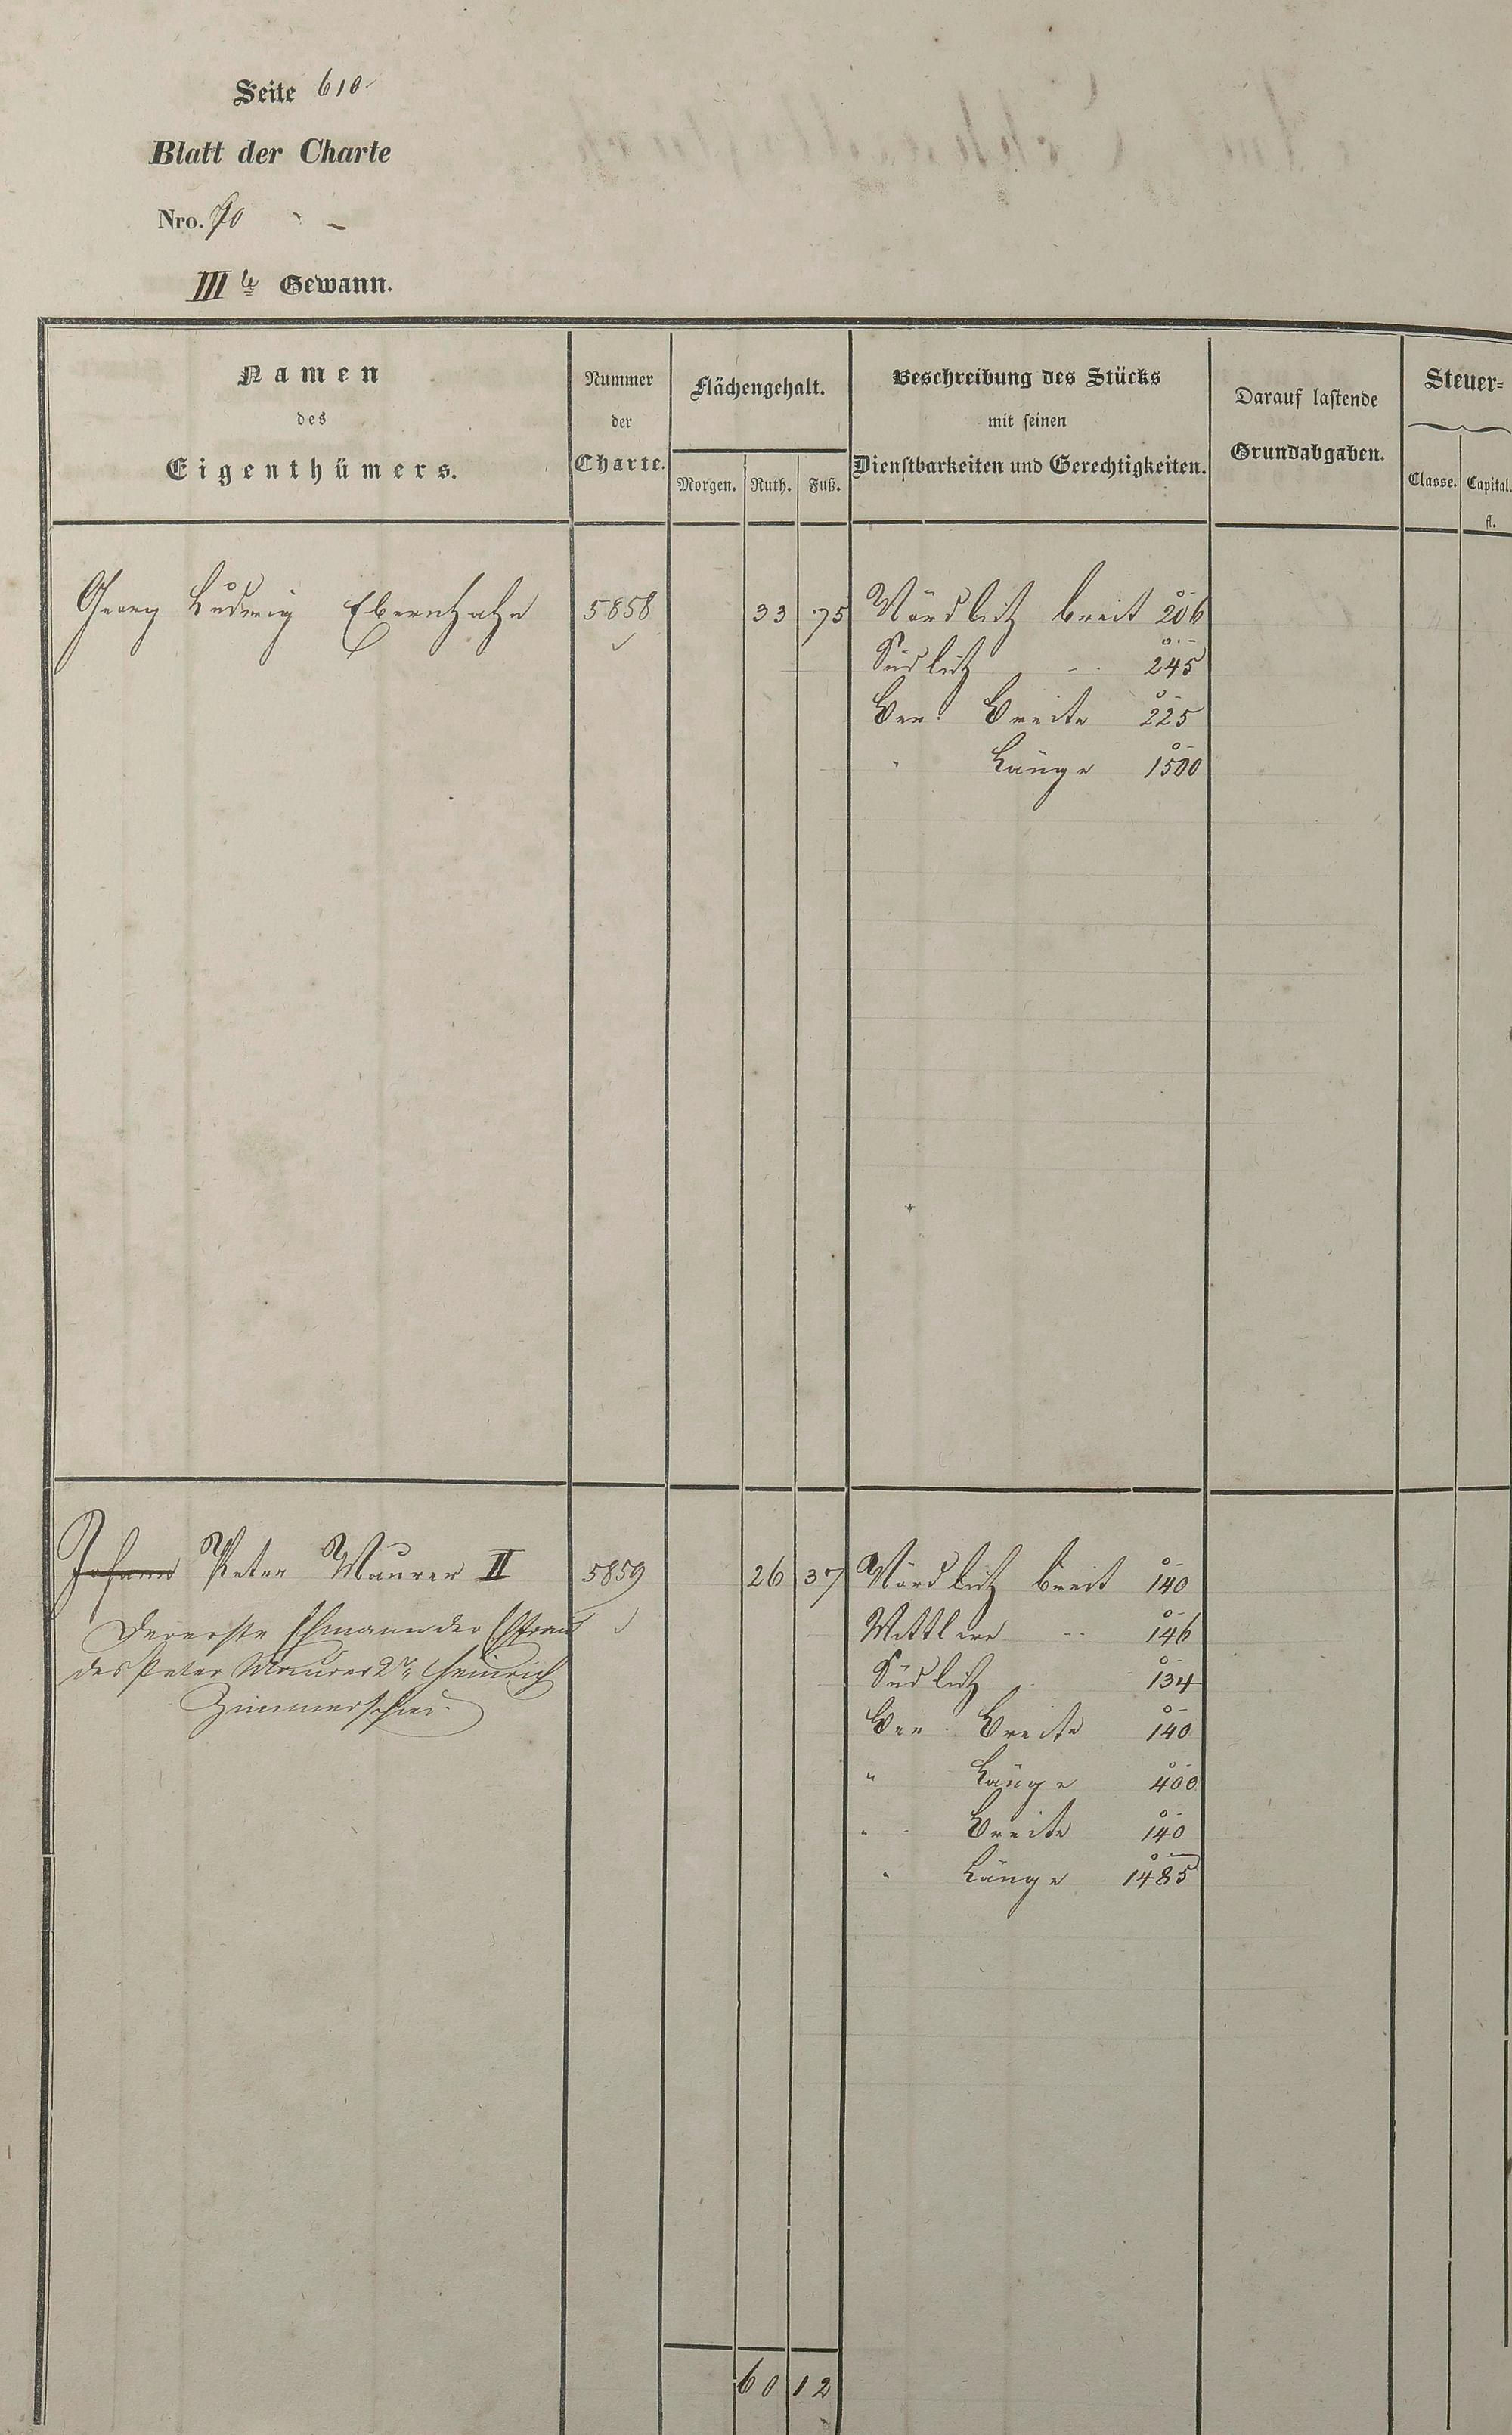 Seite 610
Blatt der Charte
Nro. 70
III te Gewann.
Namen des Eigenthümers.
Nummer der Charte.
Flächengehalt.
Morgen. Ruth. Fuß.
Beschreibung des Stücks mit seinen Dienstbarkeiten und Gerechtigkeiten.
Darauf lastende Grundabgaben.
Steuer=
Classe. Capital.
fl.
Georg Ludwig Ebertshahn 5858 33 75 Nördlich breit 206
Südlich " 245
Ber. Breite 225
" Länge 1500
Johann Peter Maurer II 5859 26 37 Nördlich breit 140
Der erste Ehmann der Ehfrau
des Peter Maurer 2r, Heinrich
Zimmerschied.
Mittlere " 146
Südlich 134
Ber. Breite 140
" Länge 400
" Breite 140
" Länge 1485
60 12